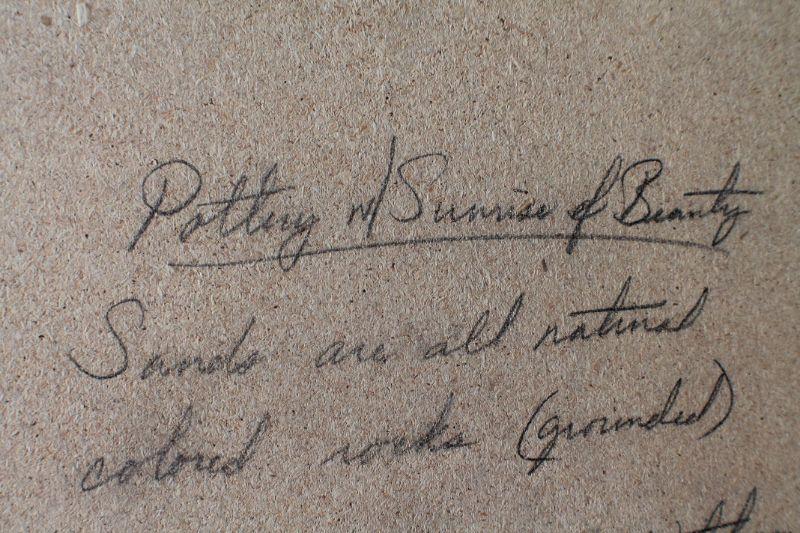 Pottery w/ Sunrise of Beauty
Sands are all natural
colored rocks (grounded)